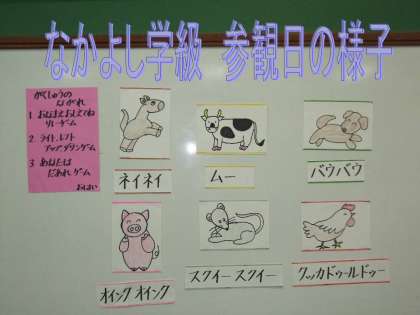 なかよし学級 参観日の様子
がくしゅうの
ながれ
1 おなまえおしえてね
リレーゲーム
2 ライト、レフト
アップ、ダウンゲーム
3 あなたは
だあれゲーム
おわい
ネイネイ
ムー
バウバウ
オインク オインク
スクイー スクイー
クッカドゥールドゥー